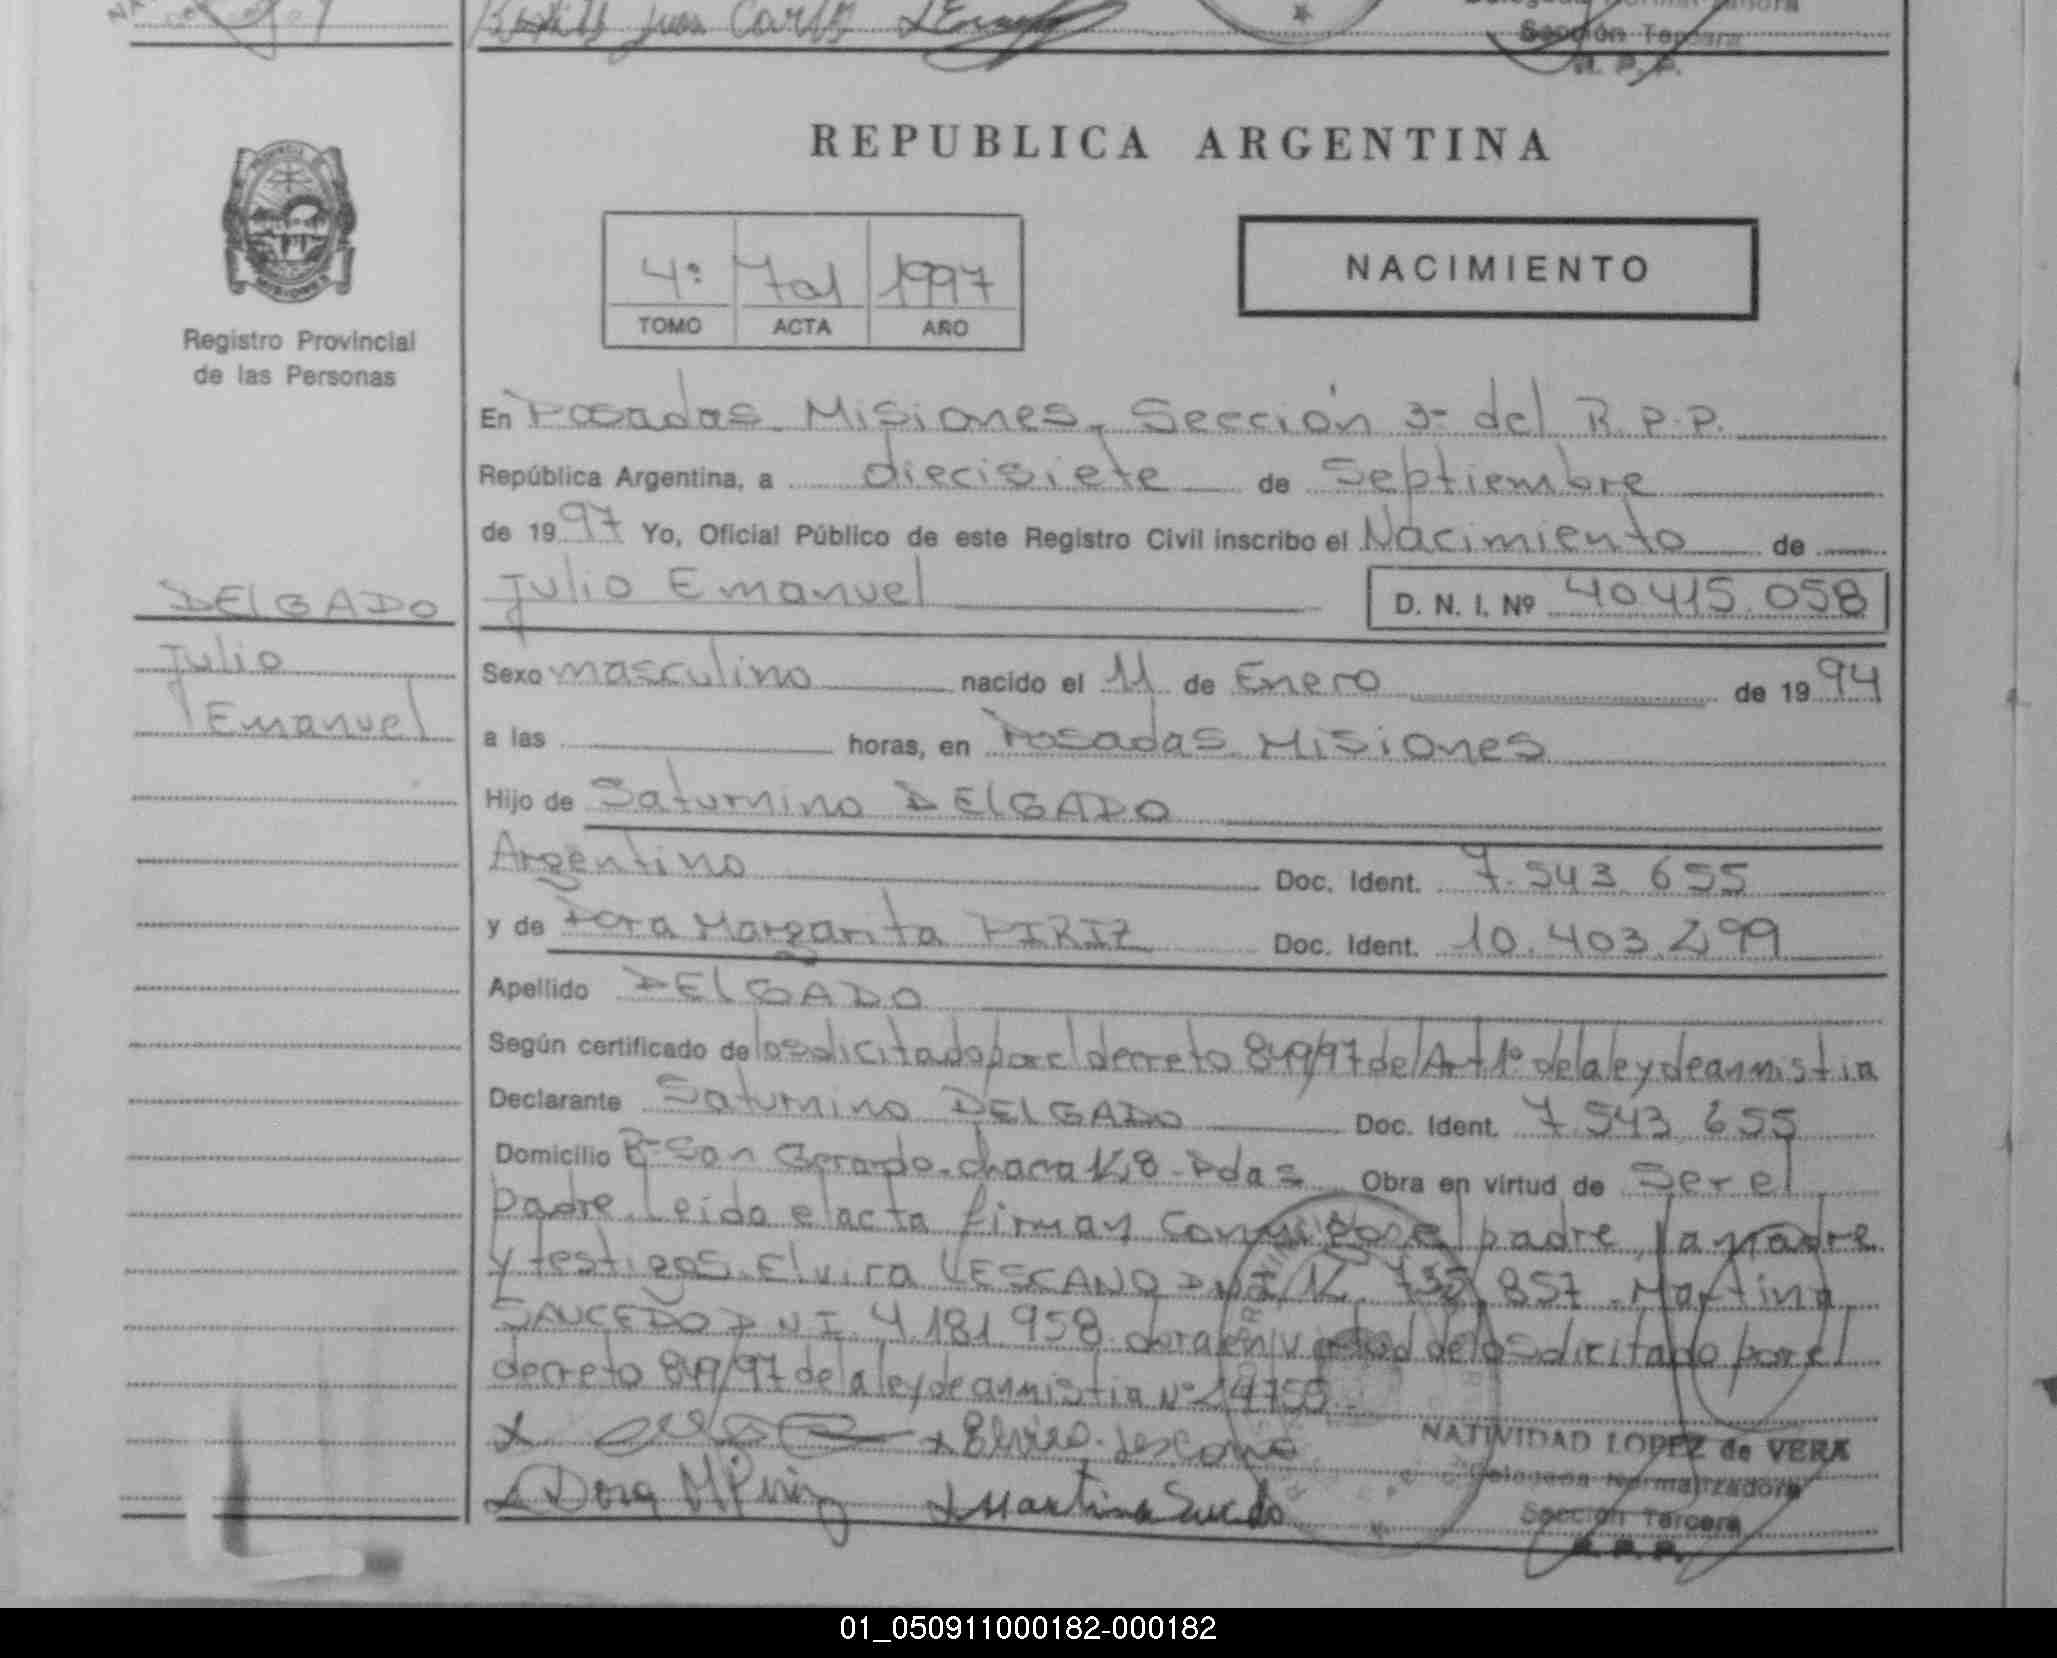 Juan Carlos
Sección Tercera
R. P. P.
REPUBLICA ARGENTINA
4º 701 1997
TOMO ACTA AÑO
NACIMIENTO
PROVINCIA
MISIONES
Registro Provincial
de las Personas
En Posadas Misiones, Sección 3ª del R.P.P.
República Argentina, a diecisiete de Septiembre
de 1997 Yo, Oficial Público de este Registro Civil inscribo el Nacimiento de
Julio Emanuel D. N. I. Nº 40.415.058
DELGADO
Julio
Emanuel
Sexo masculino nacido el 11 de Enero de 1994
a las horas, en Posadas Misiones
Hijo de Saturnino DELGADO
Argentino Doc. Ident. 7.543.655
y de Dora Margarita PIRIZ Doc. Ident. 10.403.299
Apellido DELGADO
Según certificado de lo solicitado por el decreto 849/97 del Art 1º de la ley de annistia
Declarante Saturnino DELGADO Doc. Ident. 7.543.655
Domicilio Bº San Gerardo. chacra 148 - Pdas Obra en virtud de Ser el
padre. Leido el acta firman conmigo el padre, la madre
y testigos. Elvira LESCANO DNI 12.735.857 - Martina
SAUCEDO DNI 4.181.958 obra en virtud de lo solicitado por el
decreto 849/97 de la ley de annistia Nº 24755.
x x Elvira Lescano
x Dora M Piriz x Martina Sucedo
NATIVIDAD LOPEZ de VERA
Delegada Normalizadora
Sección Tercera
R. P. P.
01_050911000182-000182